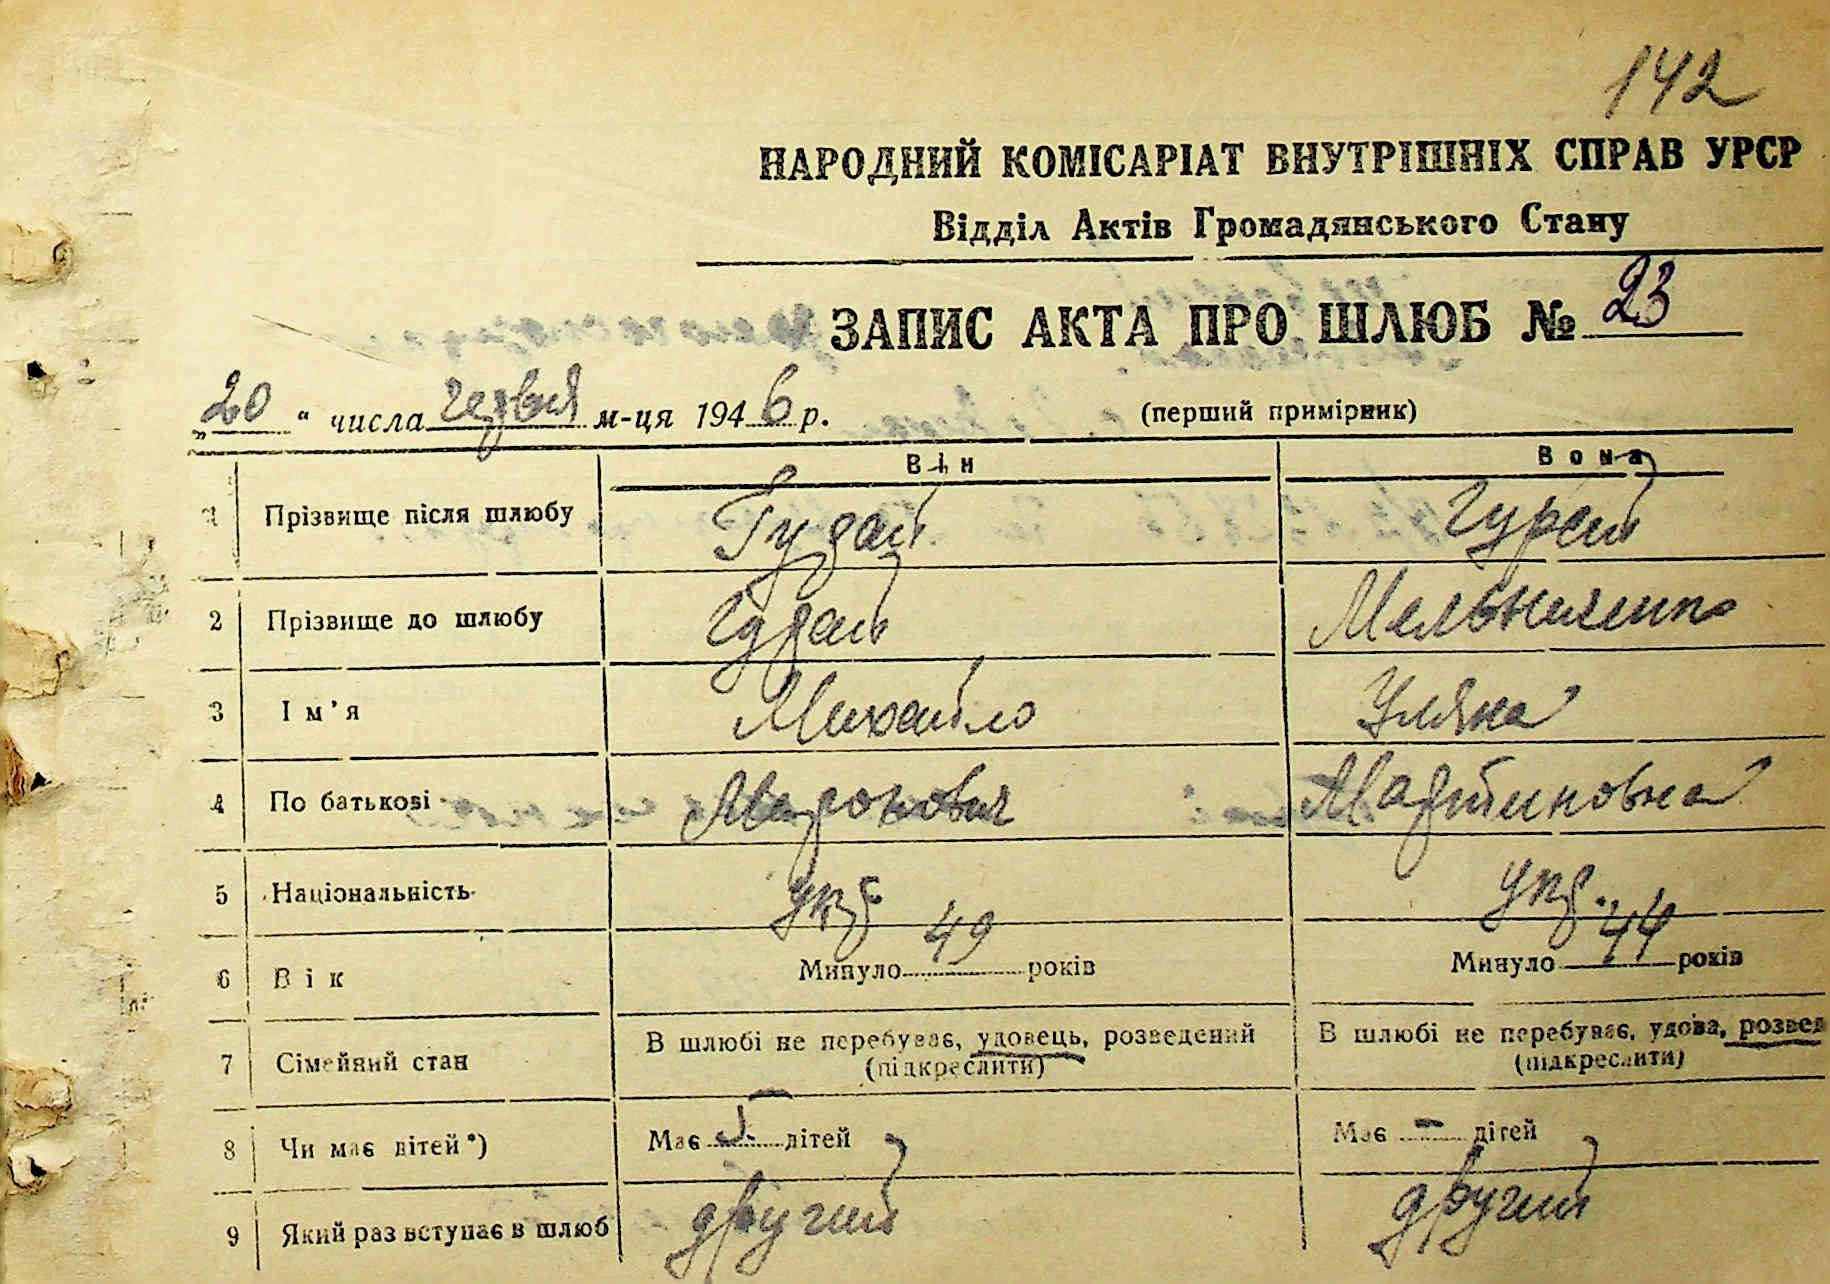 142
НАРОДНИЙ КОМІСАРІАТ ВНУТРІШНІХ СПРАВ УРСР
Відділ Актів Громадянського Стану
ЗАПИС АКТА ПРО ШЛЮБ № 23
„20 “ числа червня м-ця 1946 р. (перший примірник)
Він Вона
1 Прізвище після шлюбу Гурай Гурай
2 Прізвище до шлюбу Гурай Мельниченко
3 Ім’я Михайло Уляна
4 По батькові Миронович Мартиновна
5 Національність укр укр.
6 Вік Минуло 49 років Минуло 44 років
7 Сімейний стан В шлюбі не перебуває, удовець, розведений В шлюбі не перебуває, удова, розвед
(підкреслити) (підкреслити)
8 Чи має дітей*) Має 5 дітей Має – дітей
9 Який раз вступає в шлюб другий другий